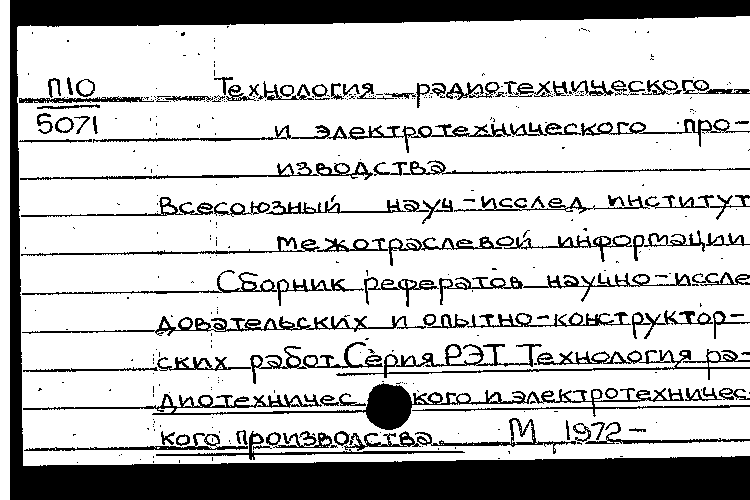 П10 Технология радиотехнического
5071 и электротехнического про-
изводства.
Всесоюзный науч-исслед. институт
межотраслевой информации
Сборник рефератов научно-иссле
довательских и опытно-конструктор-
ских работ. Серия РЭТ. Технология ра-
диотехничес кого и электротехничес
кого производства. М, 1972-